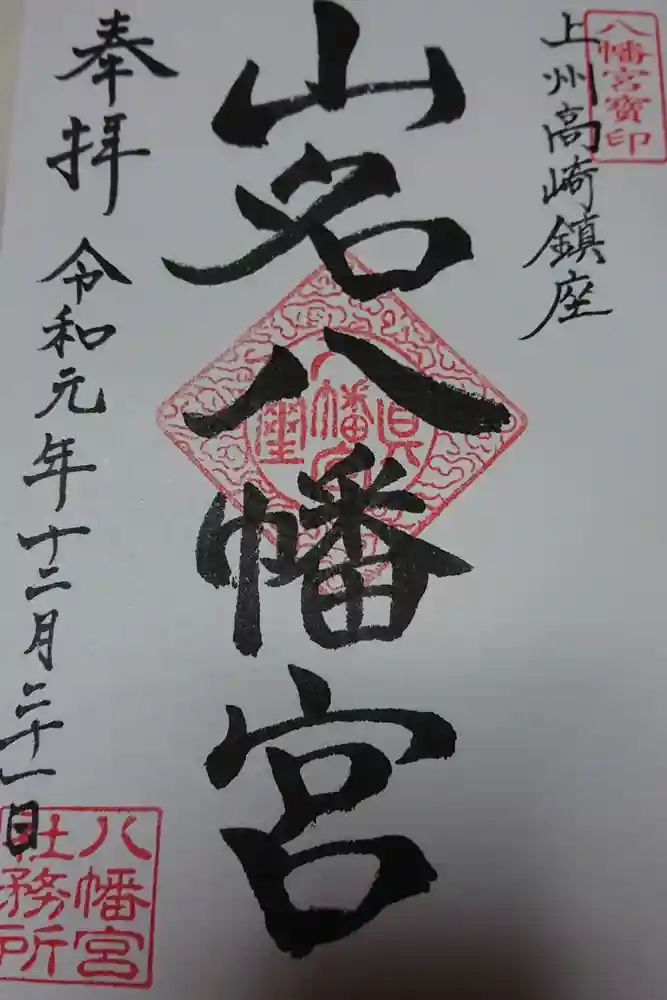 八幡宮寶印
上州高崎鎮座
山名八幡宮
奉拝
令和元年十二月二十一日
八幡宮
社務所